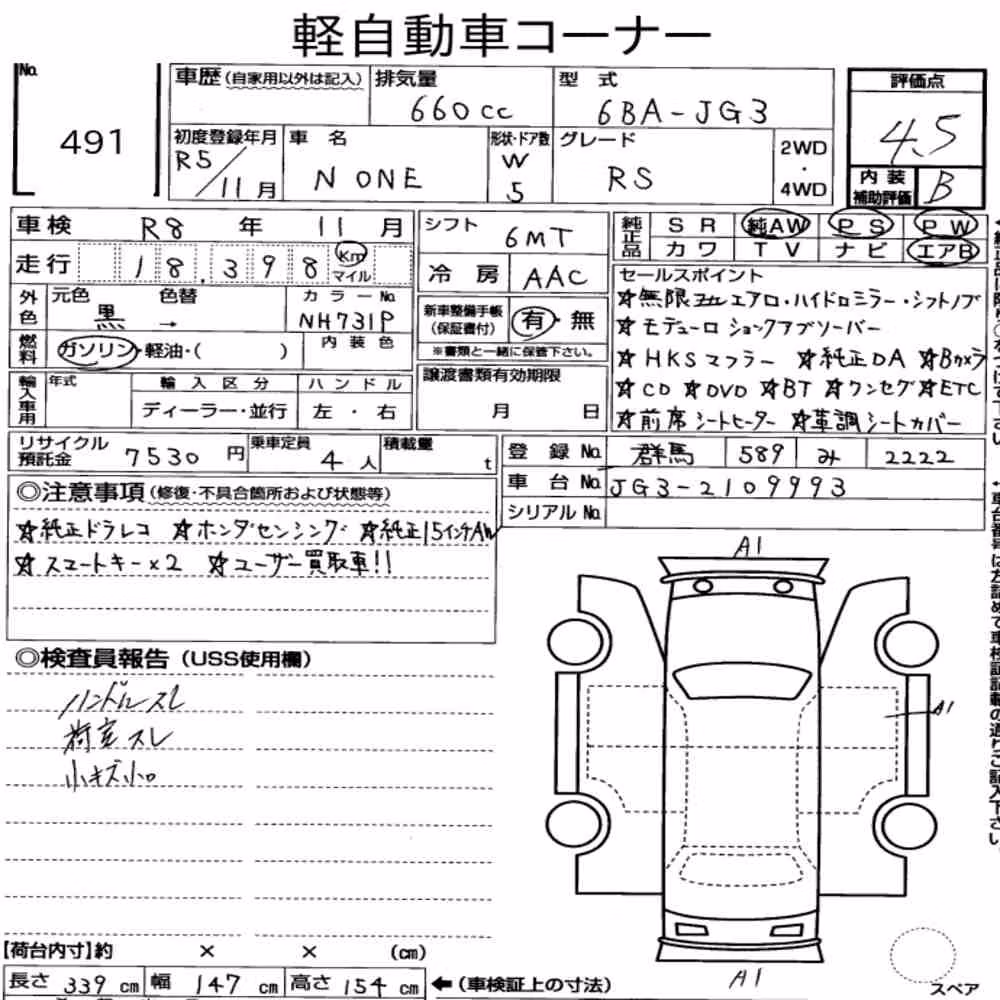 軽自動車コーナー
No.
491
車歴(自家用以外は記入)
排気量
660cc
型式
6BA-JG3
評価点
4.5
初度登録年月
R5/11月
車名
N ONE
形状・ドア数
W
5
グレード
RS
2WD
・
4WD
内装
補助評価
B
車検 R8 年 11 月
シフト
6MT
純正品
SR 純AW PS PW
カワ TV ナビ エアB
走行 18.398 Km
マイル
冷房
AAC
セールスポイント
☆無限フルエアロ・ハイドロミラー・シフトノブ
☆モデューロ ショックアブソーバー
☆HKSマフラー ☆純正DA ☆Bカメラ
☆CD ☆DVD ☆BT ☆ワンセグ ☆ETC
☆前席シートヒーター ☆革調シートカバー
外色
元色 色替
黒 →
カラーNo.
NH731P
新車整備手帳
(保証書付)
有・無
※書類と一緒に保管下さい。
燃料
ガソリン・軽油・( )
内装色
輸入車用
年式
輸入区分
ハンドル
ディーラー・並行
左・右
譲渡書類有効期限
月 日
リサイクル
預託金
7530 円
乗車定員
4 人
積載量
t
登録No.
群馬 589 み 2222
車台No.
JG3-2109993
シリアルNo.
◎注意事項(修復・不具合箇所および状態等)
☆純正ドラレコ ☆ホンダセンシング ☆純正15インチAW
☆スマートキー×2 ☆ユーザー買取車!!
◎検査員報告(USS使用欄)
ハンドルスレ
荷室スレ
小キズ小凹
A1
A1
A1
スペア
【荷台内寸】約 × × (cm)
長さ 339 cm 幅 147 cm 高さ 154 cm
←(車検証上の寸法)